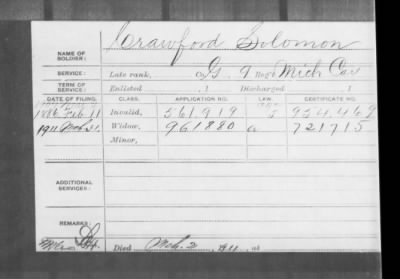 Crawford Solomon
NAME OF SOLDIER:
SERVICE: Late rank, Co. G, 9 Reg't Mich Cav
TERM OF SERVICE: Enlisted , 1 Discharged , 1
DATE OF FILING. CLASS. APPLICATION NO. LAW. CERTIFICATE NO.
1886 Feb 11 Invalid, 561919 954469
1911 Mch 21. Widow, 961880 721715
Minor,
ADDITIONAL SERVICES:
REMARKS:
Died Mch. 2 1911, at